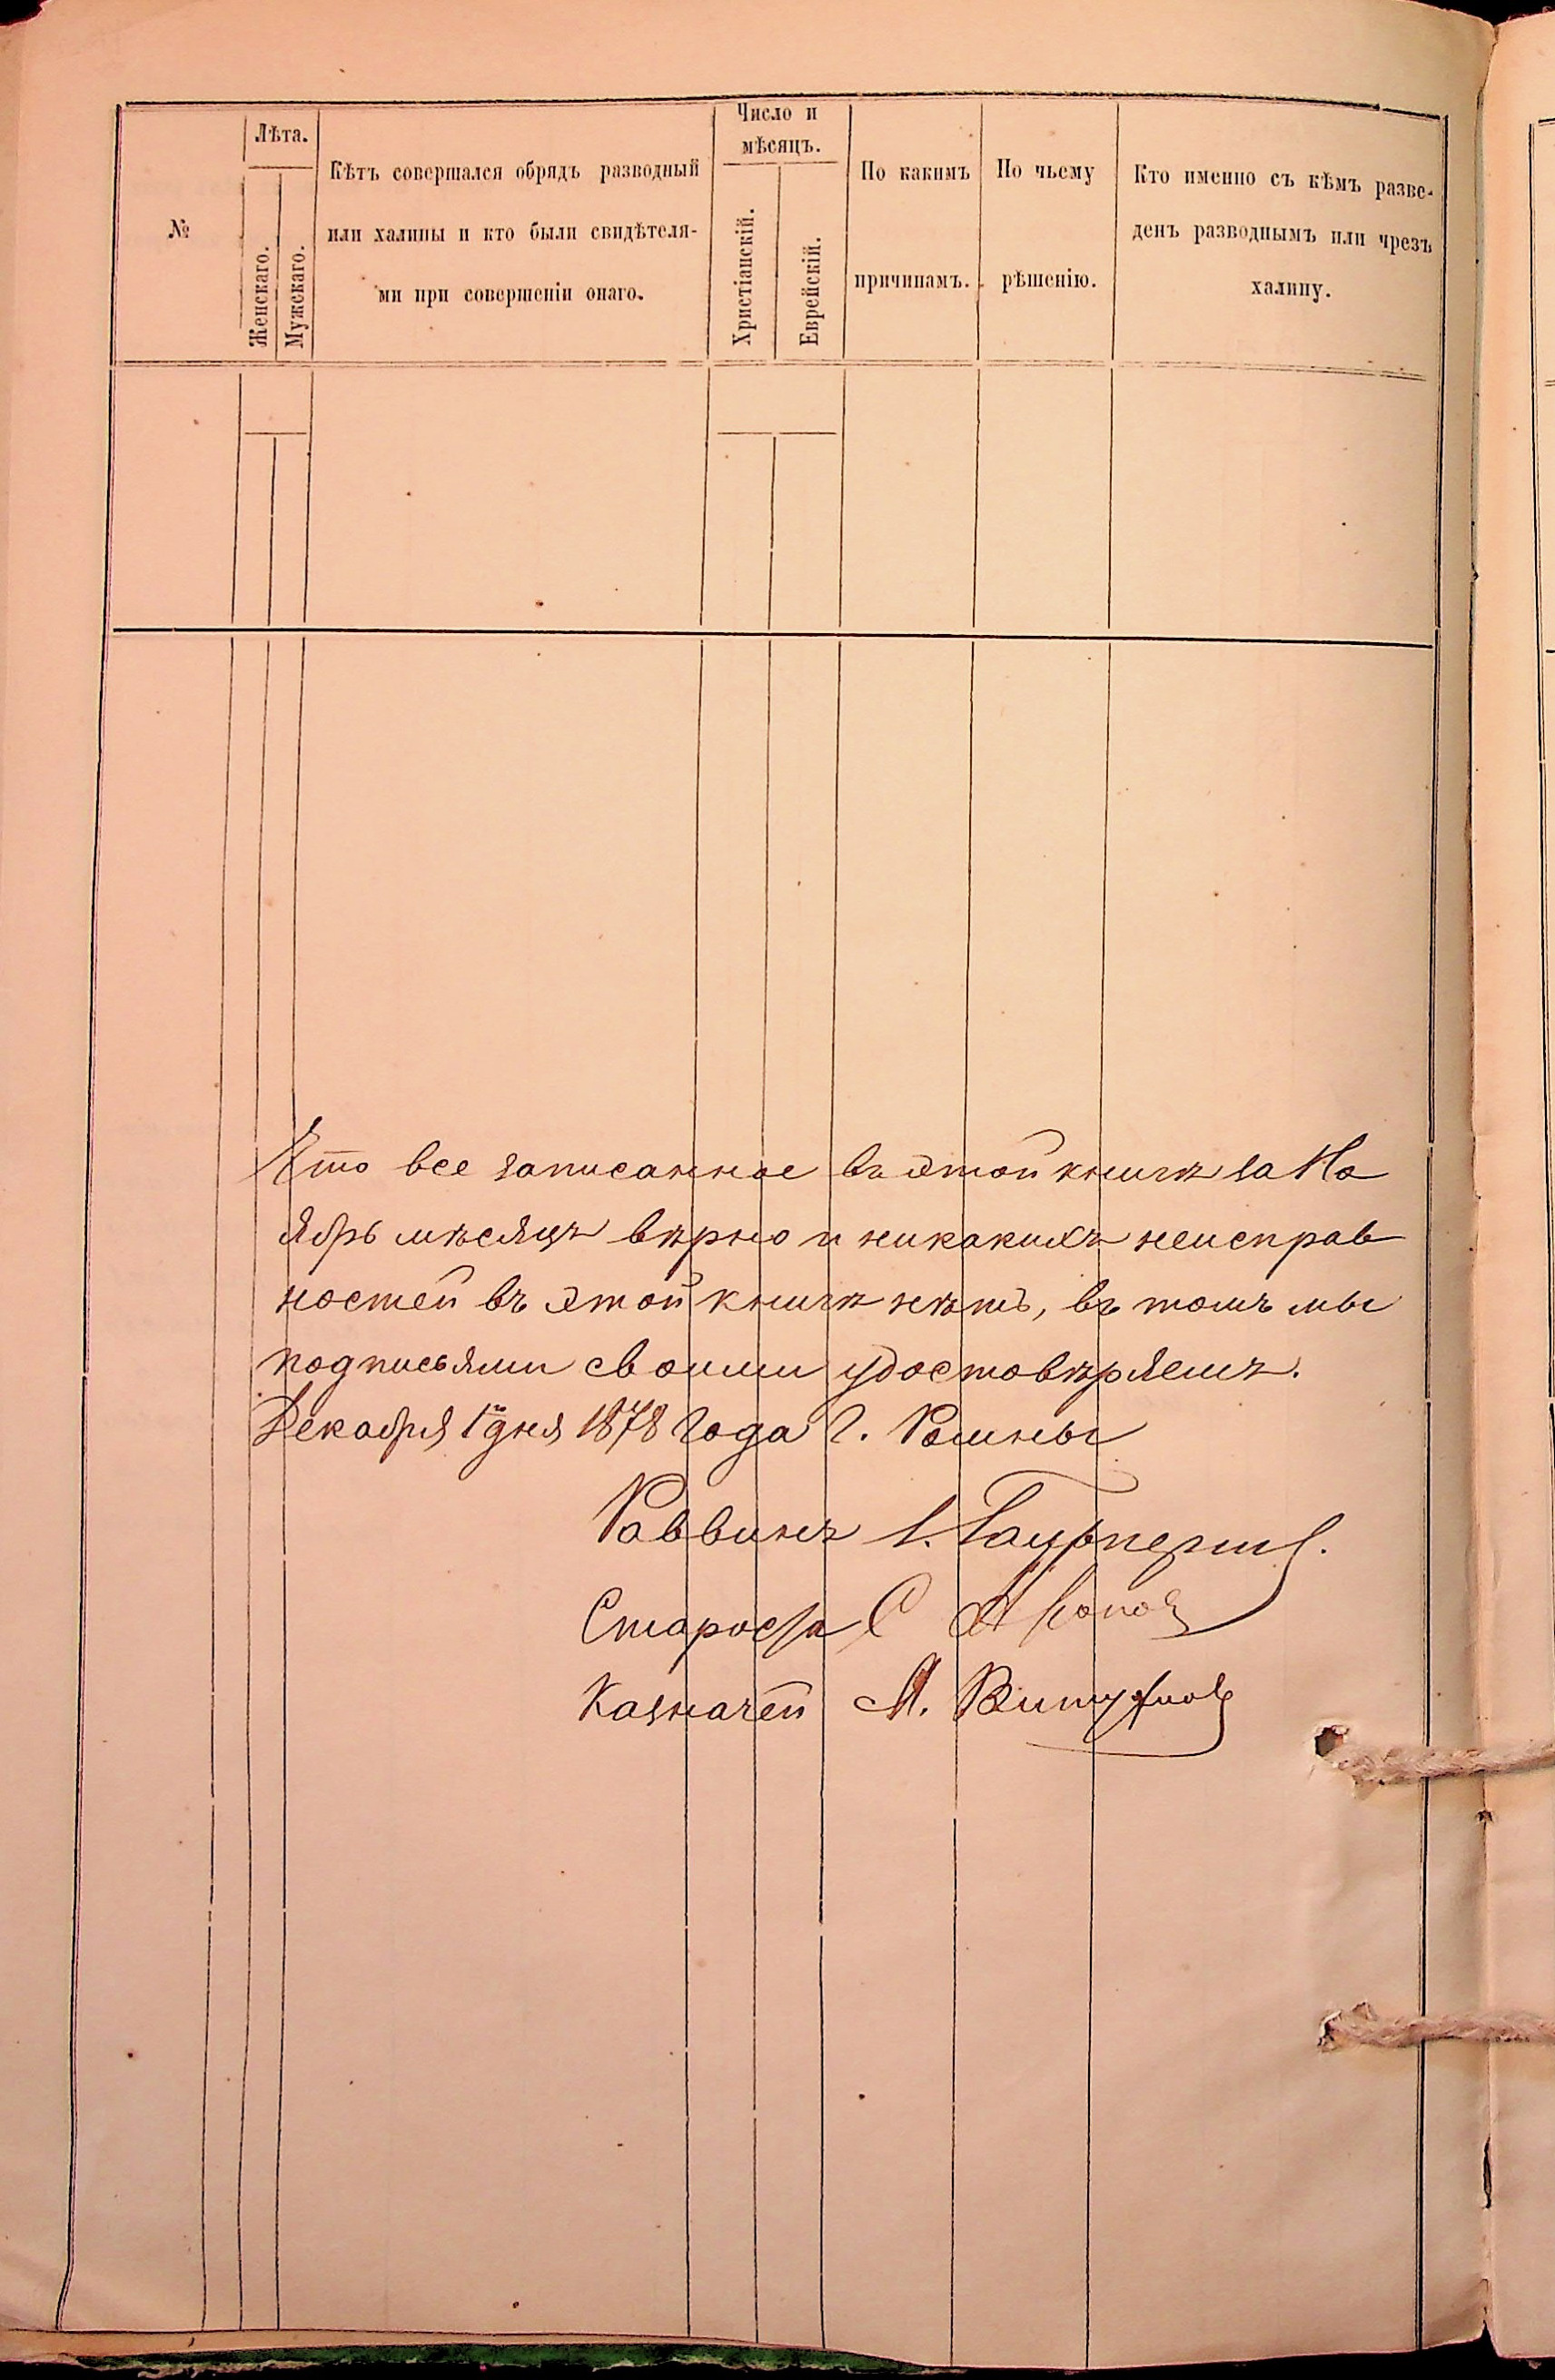 №
Лѣта.
Женскаго.
Мужскаго.
Кѣтъ совершался обрядъ разводный
или халицы и кто были свидѣтеля-
ми при совершеніи онаго.
Число и
мѣсяцъ.
Христіанскій.
Еврейскій.
По какимъ
причинамъ.
По чьему
рѣшенію.
Кто именно съ кѣмъ разве-
денъ разводнымъ или чрезъ
халицу.
Что все записанное въ этой книгѣ за Но
ябрь мѣсяцъ вѣрно и никакихъ неисправ
ностей въ этой книгѣ нѣтъ, въ томъ мы
подписьями своими удостовѣряемъ.
Декабря 1го дня 1878 года г. Ромны
Раввинъ
Староста С
Казначей М.